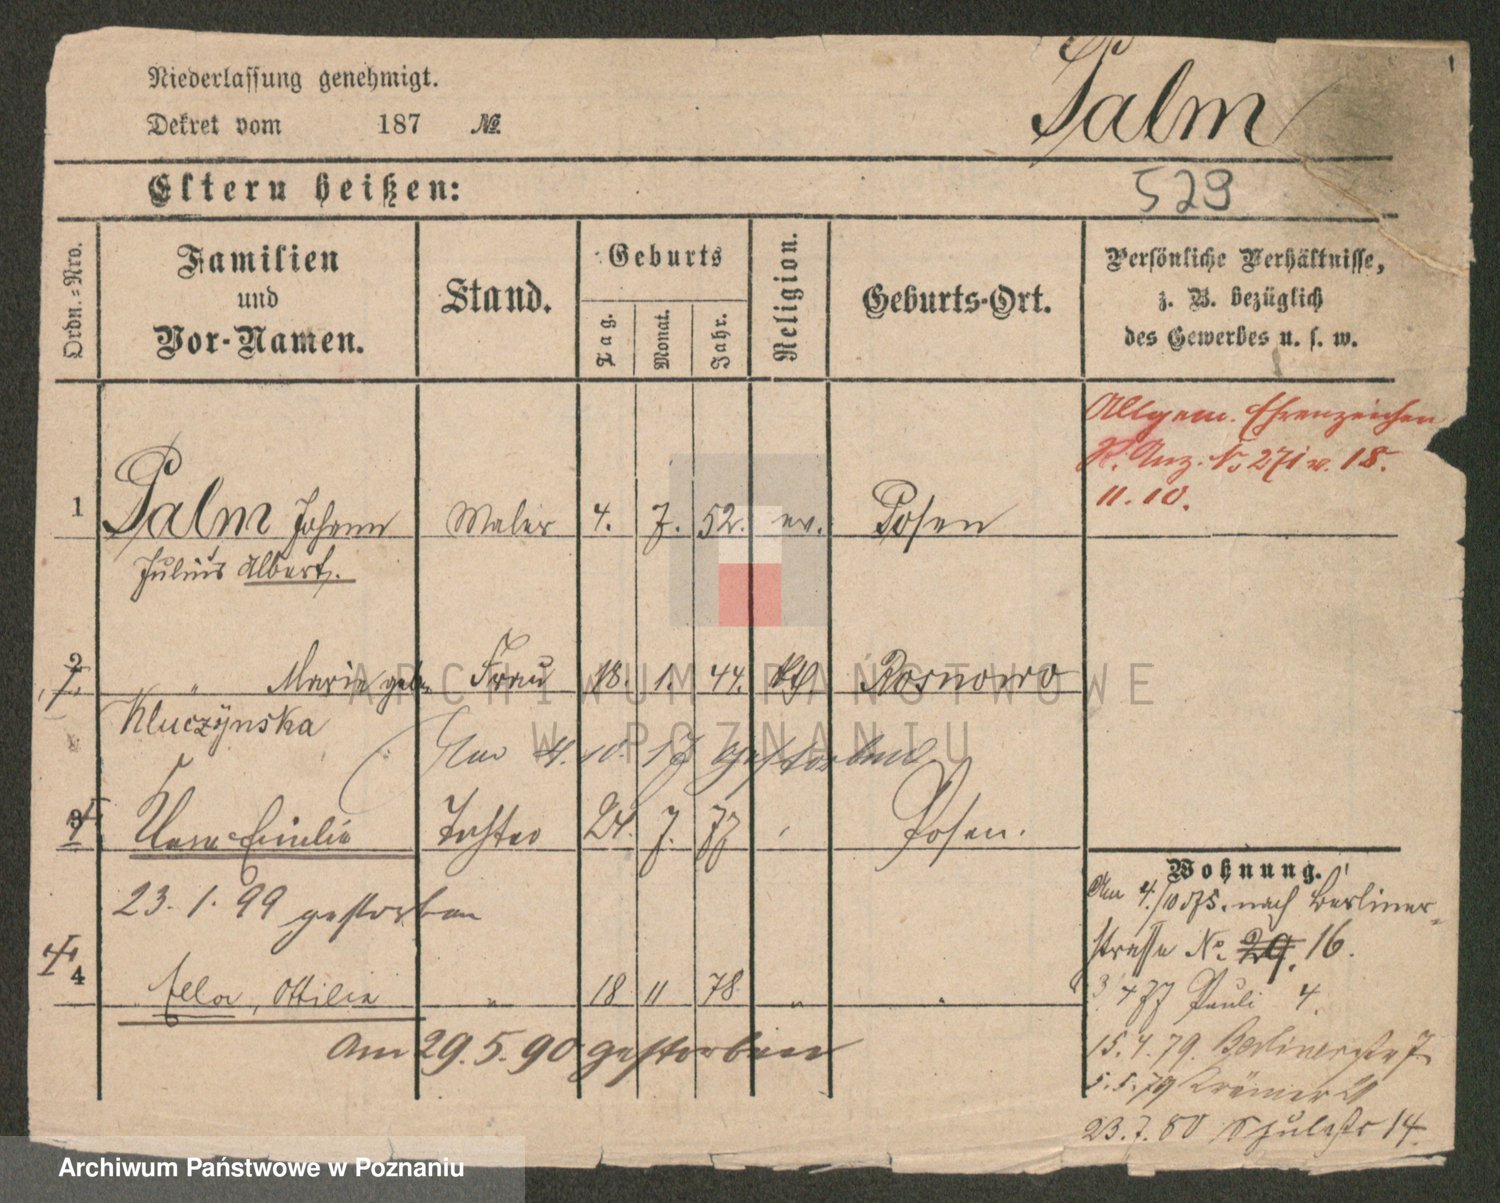 Niederlassung genehmigt.
Palm
Dekret vom 187 №
Eltern heißen:
529
Ordn.-Nro.
Familien
und
Vor-Namen.
Stand.
Geburts
Tag.
Monat.
Jahr.
Religion.
Geburts-Ort.
Persönliche Verhältnisse,
z. B. bezüglich
des Gewerbes u. s. w.
Allgem. Ehrenzeichen
R. Anz. No 271 v. 18.
11. 10.
1 Palm Johann Maler 4. 7. 52. ev. Posen
Julius Albert.
2 " Maria geb. Frau 18. 1. 44. kth Rosnowo
Kluczÿnska
Am 4. 10. 17 gestorben
3 Emilie Tochter 24. 7. 77 Posen.
23. 1. 99 gestorben
4 Ella, Ottilie " 18 11 78 " "
Am 29. 5. 90 gestorben
Wohnung.
Am 4./10 75. nach Berliner-
strasse No. 29. 16.
3 4 77 Pauli 4.
15. 4. 79. Berlinerstr 7.
5. 5. 79 Krämer
23. 7. 80 Schulstr 14.
ARCHIWUM PAŃSTWOWE
W POZNANIU
Archiwum Państwowe w Poznaniu